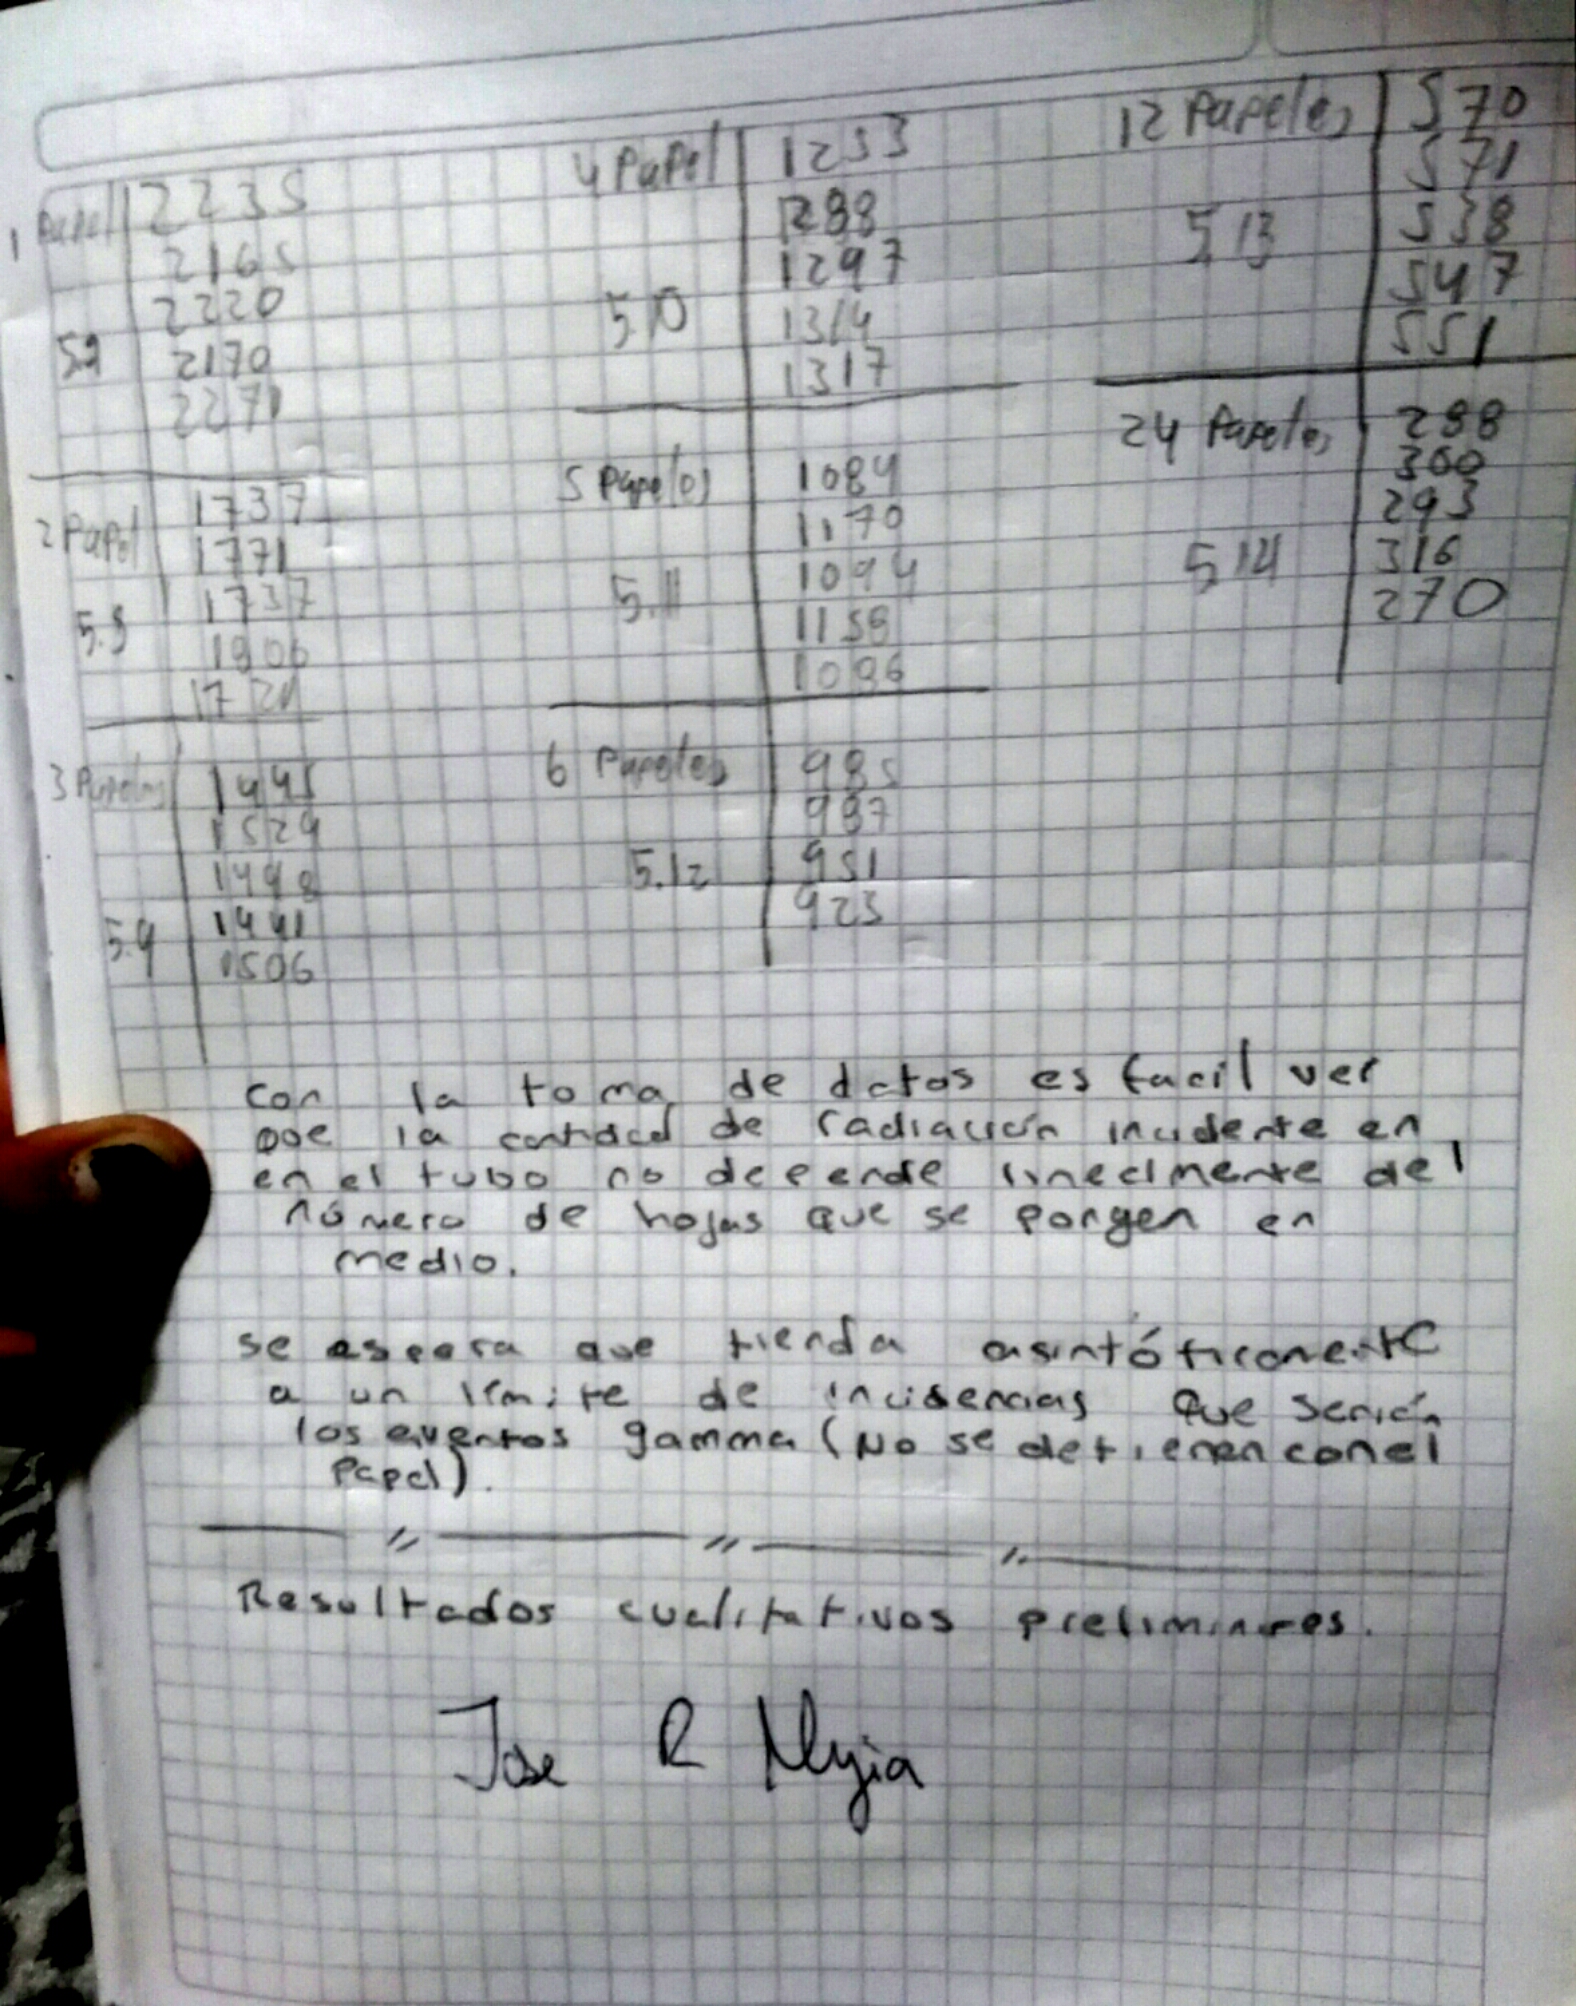 1 Papel 2235
2165
2220
2170
2271
2 Papel 1737
1771
1737
1806
1721
3 Papeles 1445
1529
1498
5.9 1441
1506
4 Papel 1253
1288
1297
5.10 1314
1317
5 Papeles 1084
1170
5.11 1094
1158
1086
6 Papeles 985
987
5.12 951
923
12 Papeles 570
571
5 13 538
547
551
24 Papeles 288
300
293
5 14 316
270
con la toma de datos es facil ver
que la cantidad de radiación incidente en
en el tubo no depende linealmente del
número de hojas que se pongen en
medio.
se espera que tienda asintóticamente
a un límite de incidencias que serián
los eventos gamma (No se detienen con el
papel).
Resultados cualitativos preliminares.
Jose R